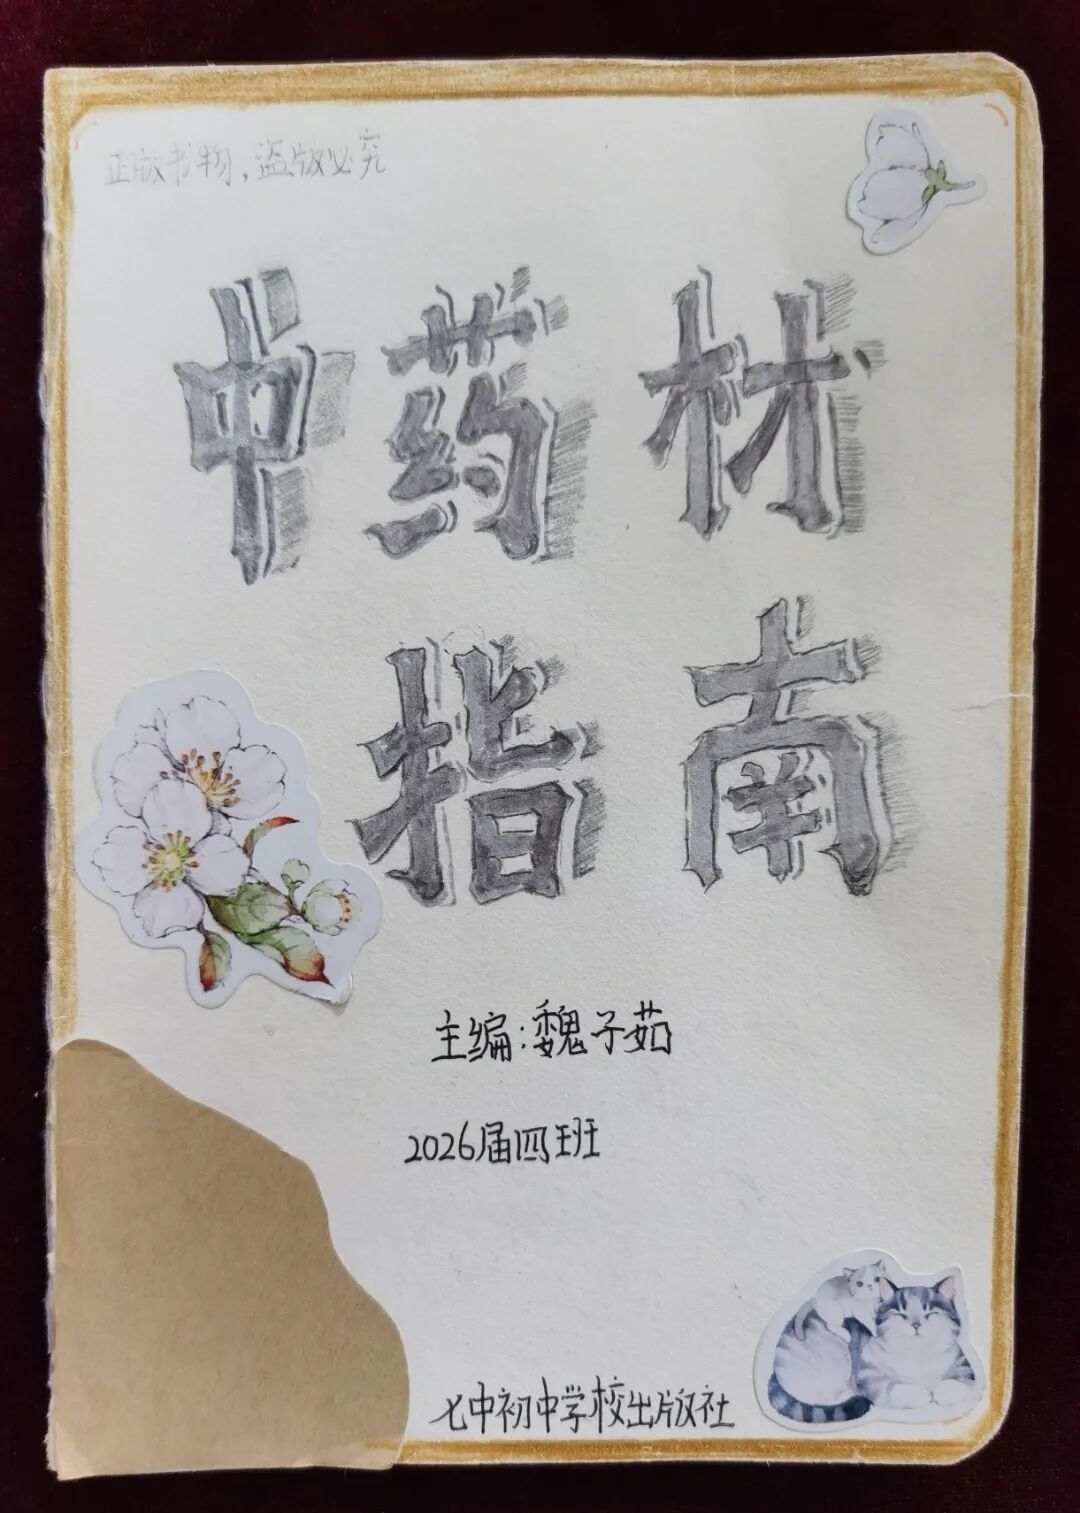 正版书物，盗版必究
中药材
指南
主编：魏子茹
2026届四班
七中初中学校出版社